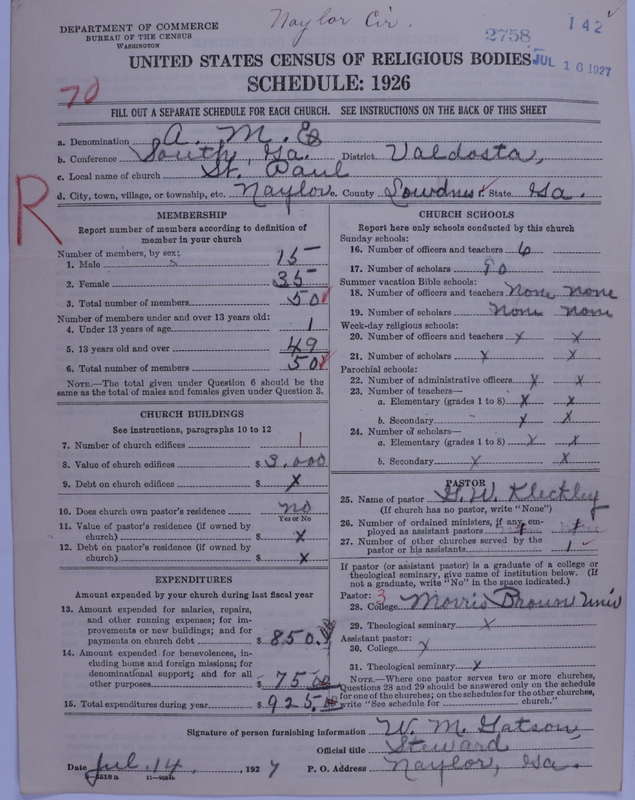 Naylor Cir.
142
2758
JUL 16 1927
DEPARTMENT OF COMMERCE
BUREAU OF THE CENSUS
WASHINGTON
UNITED STATES CENSUS OF RELIGIOUS BODIES
SCHEDULE: 1926
70
FILL OUT A SEPARATE SCHEDULE FOR EACH CHURCH. SEE INSTRUCTIONS ON THE BACK OF THIS SHEET
R
a. Denomination A. M. E.
b. Conference South, Ga. District Valdosta,
c. Local name of church St. Paul
d. City, town, village, or township, etc. Naylor e. County Lowdnes f. State Ga.
MEMBERSHIP
Report number of members according to definition of
member in your church
Number of members, by sex:
1. Male 15
2. Female 35
3. Total number of members 50
Number of members under and over 13 years old:
4. Under 13 years of age 1
5. 13 years old and over 49
6. Total number of members 50
NOTE.—The total given under Question 6 should be the
same as the total of males and females given under Question 3.
CHURCH BUILDINGS
See instructions, paragraphs 10 to 12
7. Number of church edifices 1
8. Value of church edifices $ 3,000
9. Debt on church edifices $ X
10. Does church own pastor's residence no
Yes or No
11. Value of pastor's residence (if owned by
church) $ X
12. Debt on pastor's residence (if owned by
church) $ X
EXPENDITURES
Amount expended by your church during last fiscal year
13. Amount expended for salaries, repairs,
and other running expenses; for im-
provements or new buildings; and for
payments on church debt $ 850.
14. Amount expended for benevolences, in-
cluding home and foreign missions; for
denominational support; and for all
other purposes $ 75
15. Total expenditures during year $ 925.
CHURCH SCHOOLS
Report here only schools conducted by this church
Sunday schools:
16. Number of officers and teachers 6
17. Number of scholars 90
Summer vacation Bible schools:
18. Number of officers and teachers None None
19. Number of scholars None None
Week-day religious schools:
20. Number of officers and teachers X X
21. Number of scholars X X
Parochial schools:
22. Number of administrative officers X X
23. Number of teachers—
a. Elementary (grades 1 to 8) X X
b. Secondary X X
24. Number of scholars—
a. Elementary (grades 1 to 8) X X
b. Secondary X X
PASTOR
25. Name of pastor G. W. Kleckley
(If church has no pastor, write "None")
26. Number of ordained ministers, if any, em-
ployed as assistant pastors
27. Number of other churches served by the
pastor or his assistants 1
If pastor (or assistant pastor) is a graduate of a college or
theological seminary, give name of institution below. (If
not a graduate, write "No" in the space indicated.)
Pastor: 3
28. College Morris Brown Univ
29. Theological seminary X
Assistant pastor:
30. College X
31. Theological seminary X
NOTE.—Where one pastor serves two or more churches,
Questions 28 and 29 should be answered only on the schedule
for one of the churches; on the schedules for the other churches,
write "See schedule for church."
Signature of person furnishing information W. M. Gatson,
Official title Steward
Date Jul. 14, 1927 P. O. Address Naylor, Ga.